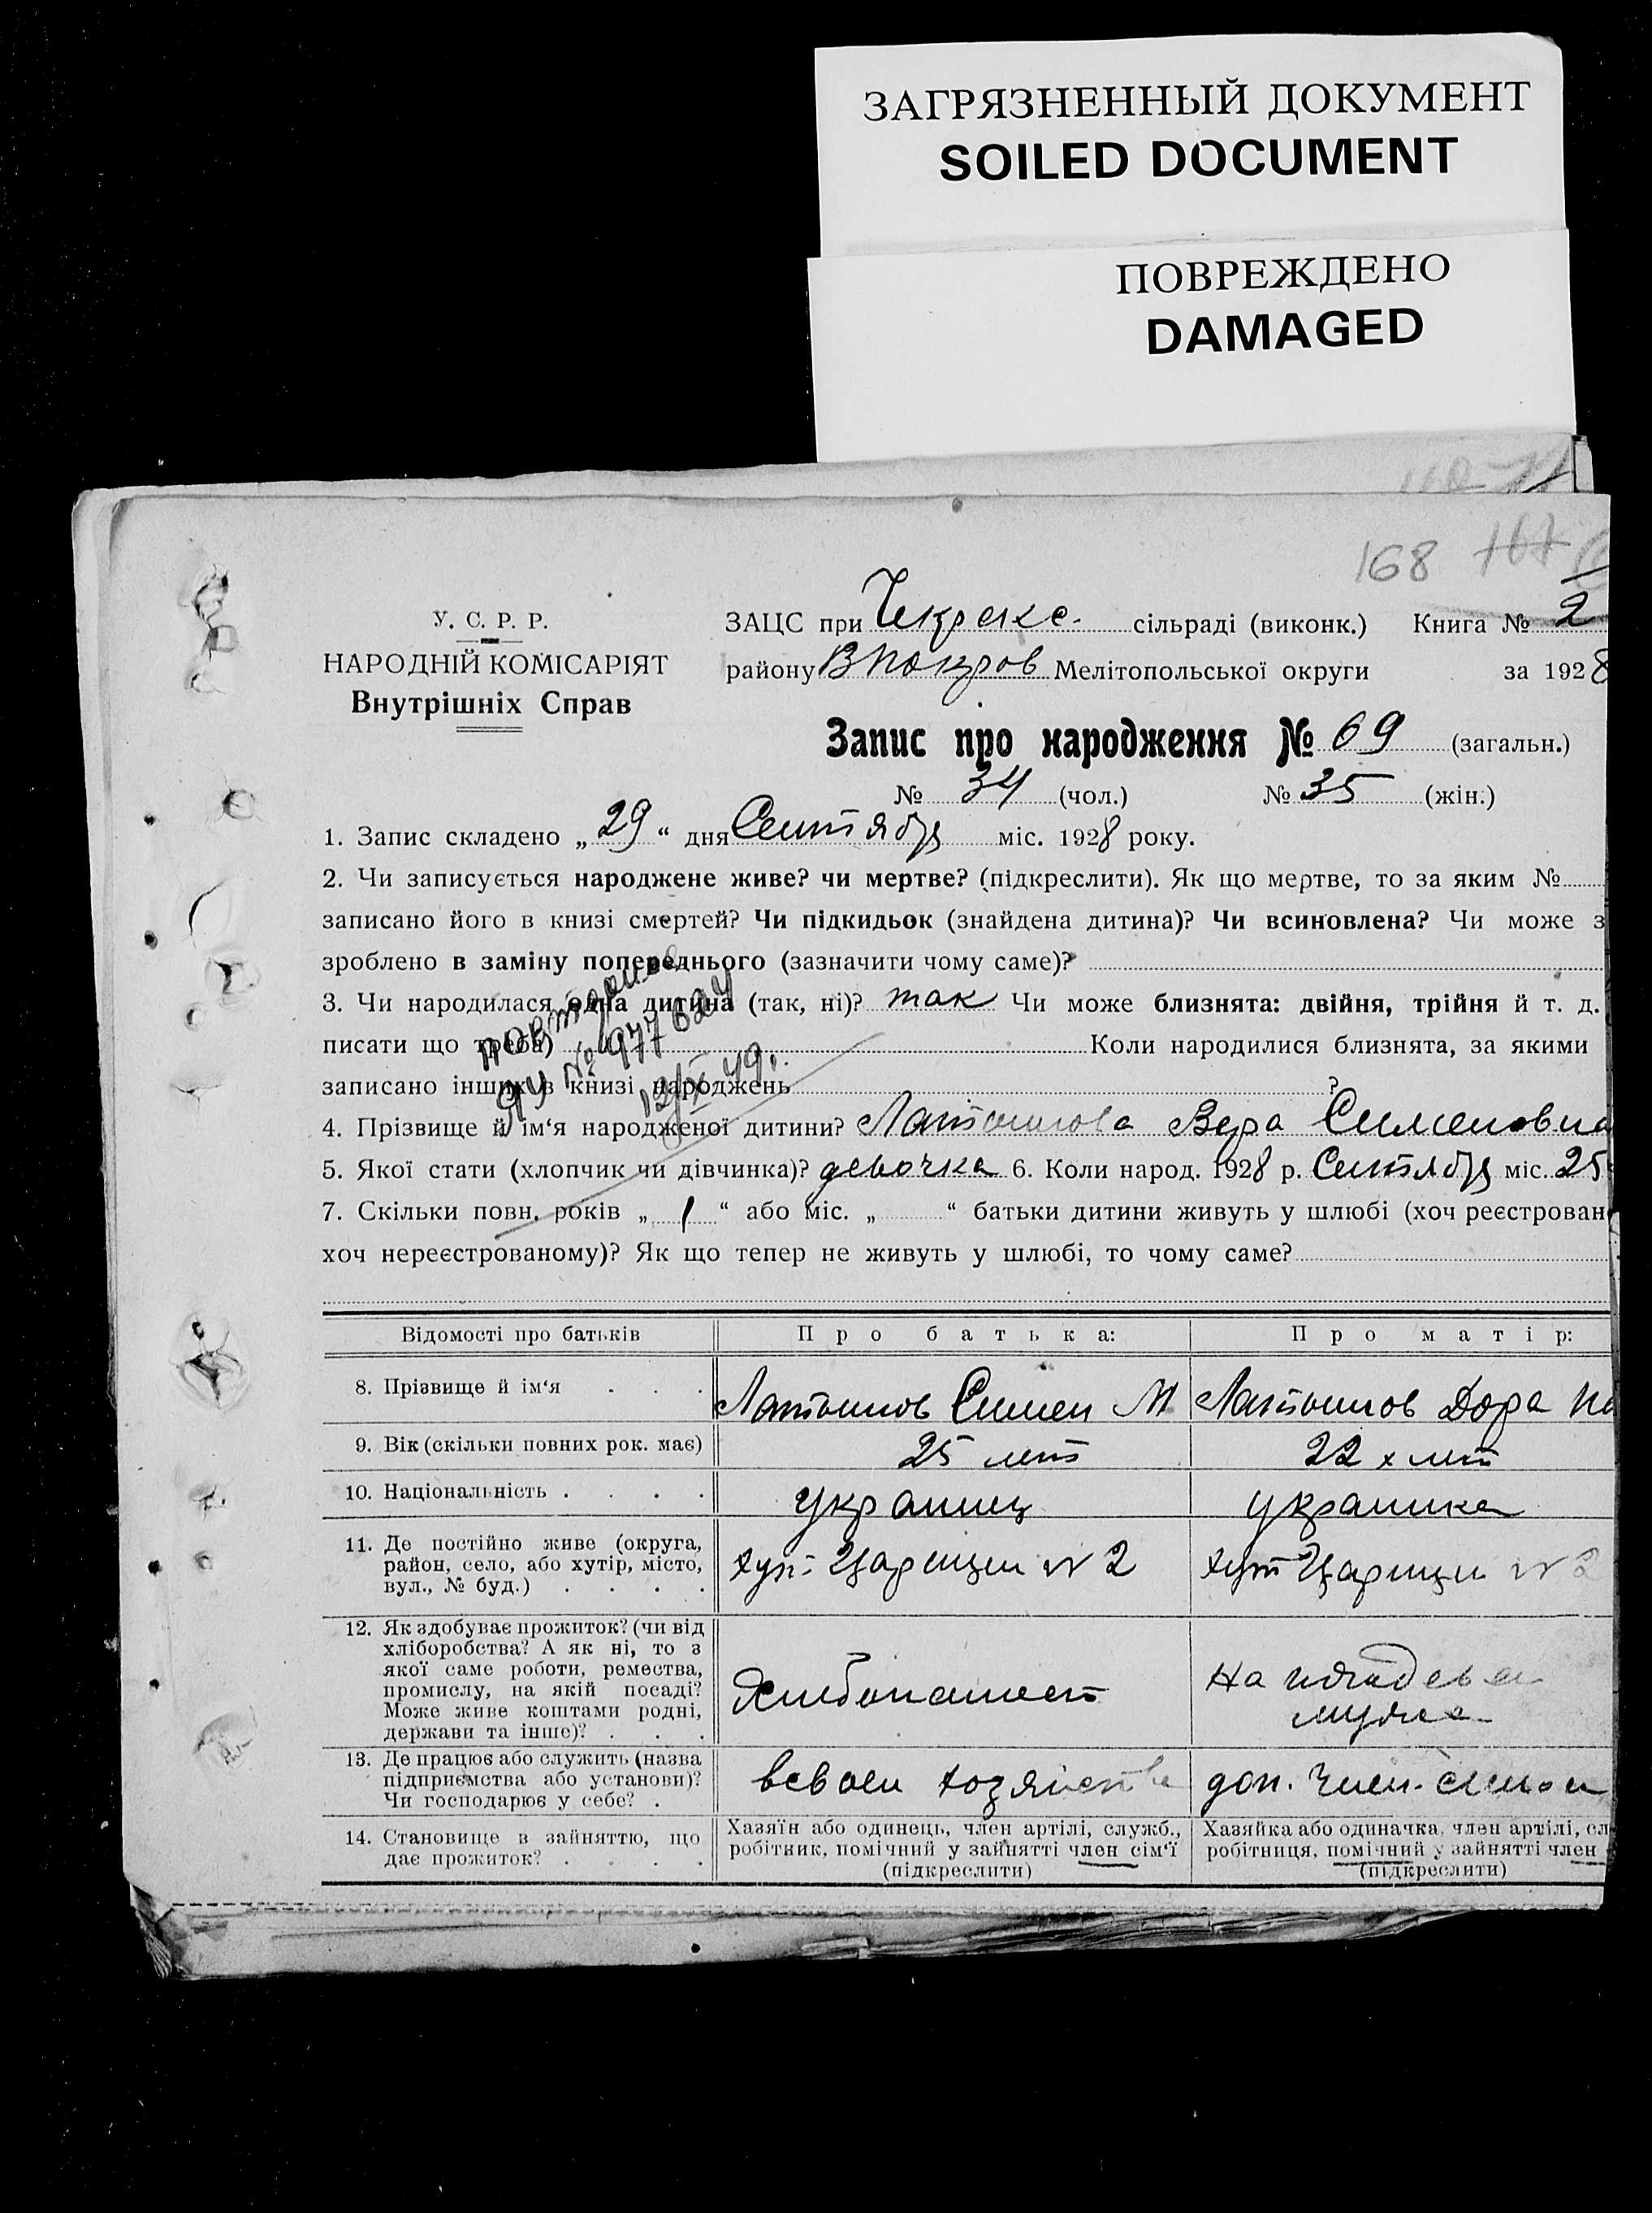 ЗАГРЯЗНЕННЫЙ ДОКУМЕНТ
SOILED DOCUMENT
ПОВРЕЖДЕНО
DAMAGED
168 167
У. С. Р. Р.
НАРОДНІЙ КОМІСАРІЯТ
Внутрішніх Справ
ЗАЦС при сільраді (виконк.) Книга № 2
району ВПокров Мелітопольської округи за 1928
Запис про народження № 69 (загальн.)
№ 34 (чол.) № 35 (жін.)
1. Запис складено „29“ дня Сентября міс. 1928 року.
2. Чи записується народжене живе? чи мертве? (підкреслити). Як що мертве, то за яким №
записано його в книзі смертей? Чи підкидьок (знайдена дитина)? Чи всиновлена? Чи може з
зроблено в заміну попереднього (зазначити чому саме)?
3. Чи народилася одна дитина (так, ні)? так Чи може близнята: двійня, трійня й т. д.
писати що треба) Коли народилися близнята, за якими
записано інших в книзі народжень ?
повторное
ЯУ № 977624
12/X 49г.
4. Прізвище й ім‘я народженої дитини? Вера Сименовна
5. Якої стати (хлопчик чи дівчинка)? девочка 6. Коли народ. 1928 р. Сентябр міс. 25
7. Скільки повн. років „ 1 “ або міс. „ “ батьки дитини живуть у шлюбі (хоч реєстрован
хоч нереєстрованому)? Як що тепер не живуть у шлюбі, то чому саме?
Відомості про батьків
Про батька:
Про матір:
8. Прізвище й ім‘я . . .
Симен М
Дора
9. Вік (скільки повних рок. має)
25 лет
22 х лет
10. Національність . . . .
украинец
украинка
11. Де постійно живе (округа,
район, село, або хутір, місто,
вул., № буд.) . . . .
хут. Царицын N 2
хут Царицын N 2
12. Як здобуває прожиток? (чи від
хліборобства? А як ні, то з
якої саме роботи, ремества,
промислу, на якій посаді?
Може живе коштами родні,
держави та інше)? . . .
Хлебопашест
На
мужа
13. Де працює або служить (назва
підприємства або установи)?
Чи господарює у себе? .
всвоем хозяйстве
14. Становище в зайняттю, що
дає прожиток? . . . .
Хазяїн або одинець, член артілі, служб.,
робітник, помічний у зайнятті член сім‘ї
(підкреслити)
Хазяйка або одиначка, член артілі, сл
робітниця, помічний у зайнятті член
(підкреслити)